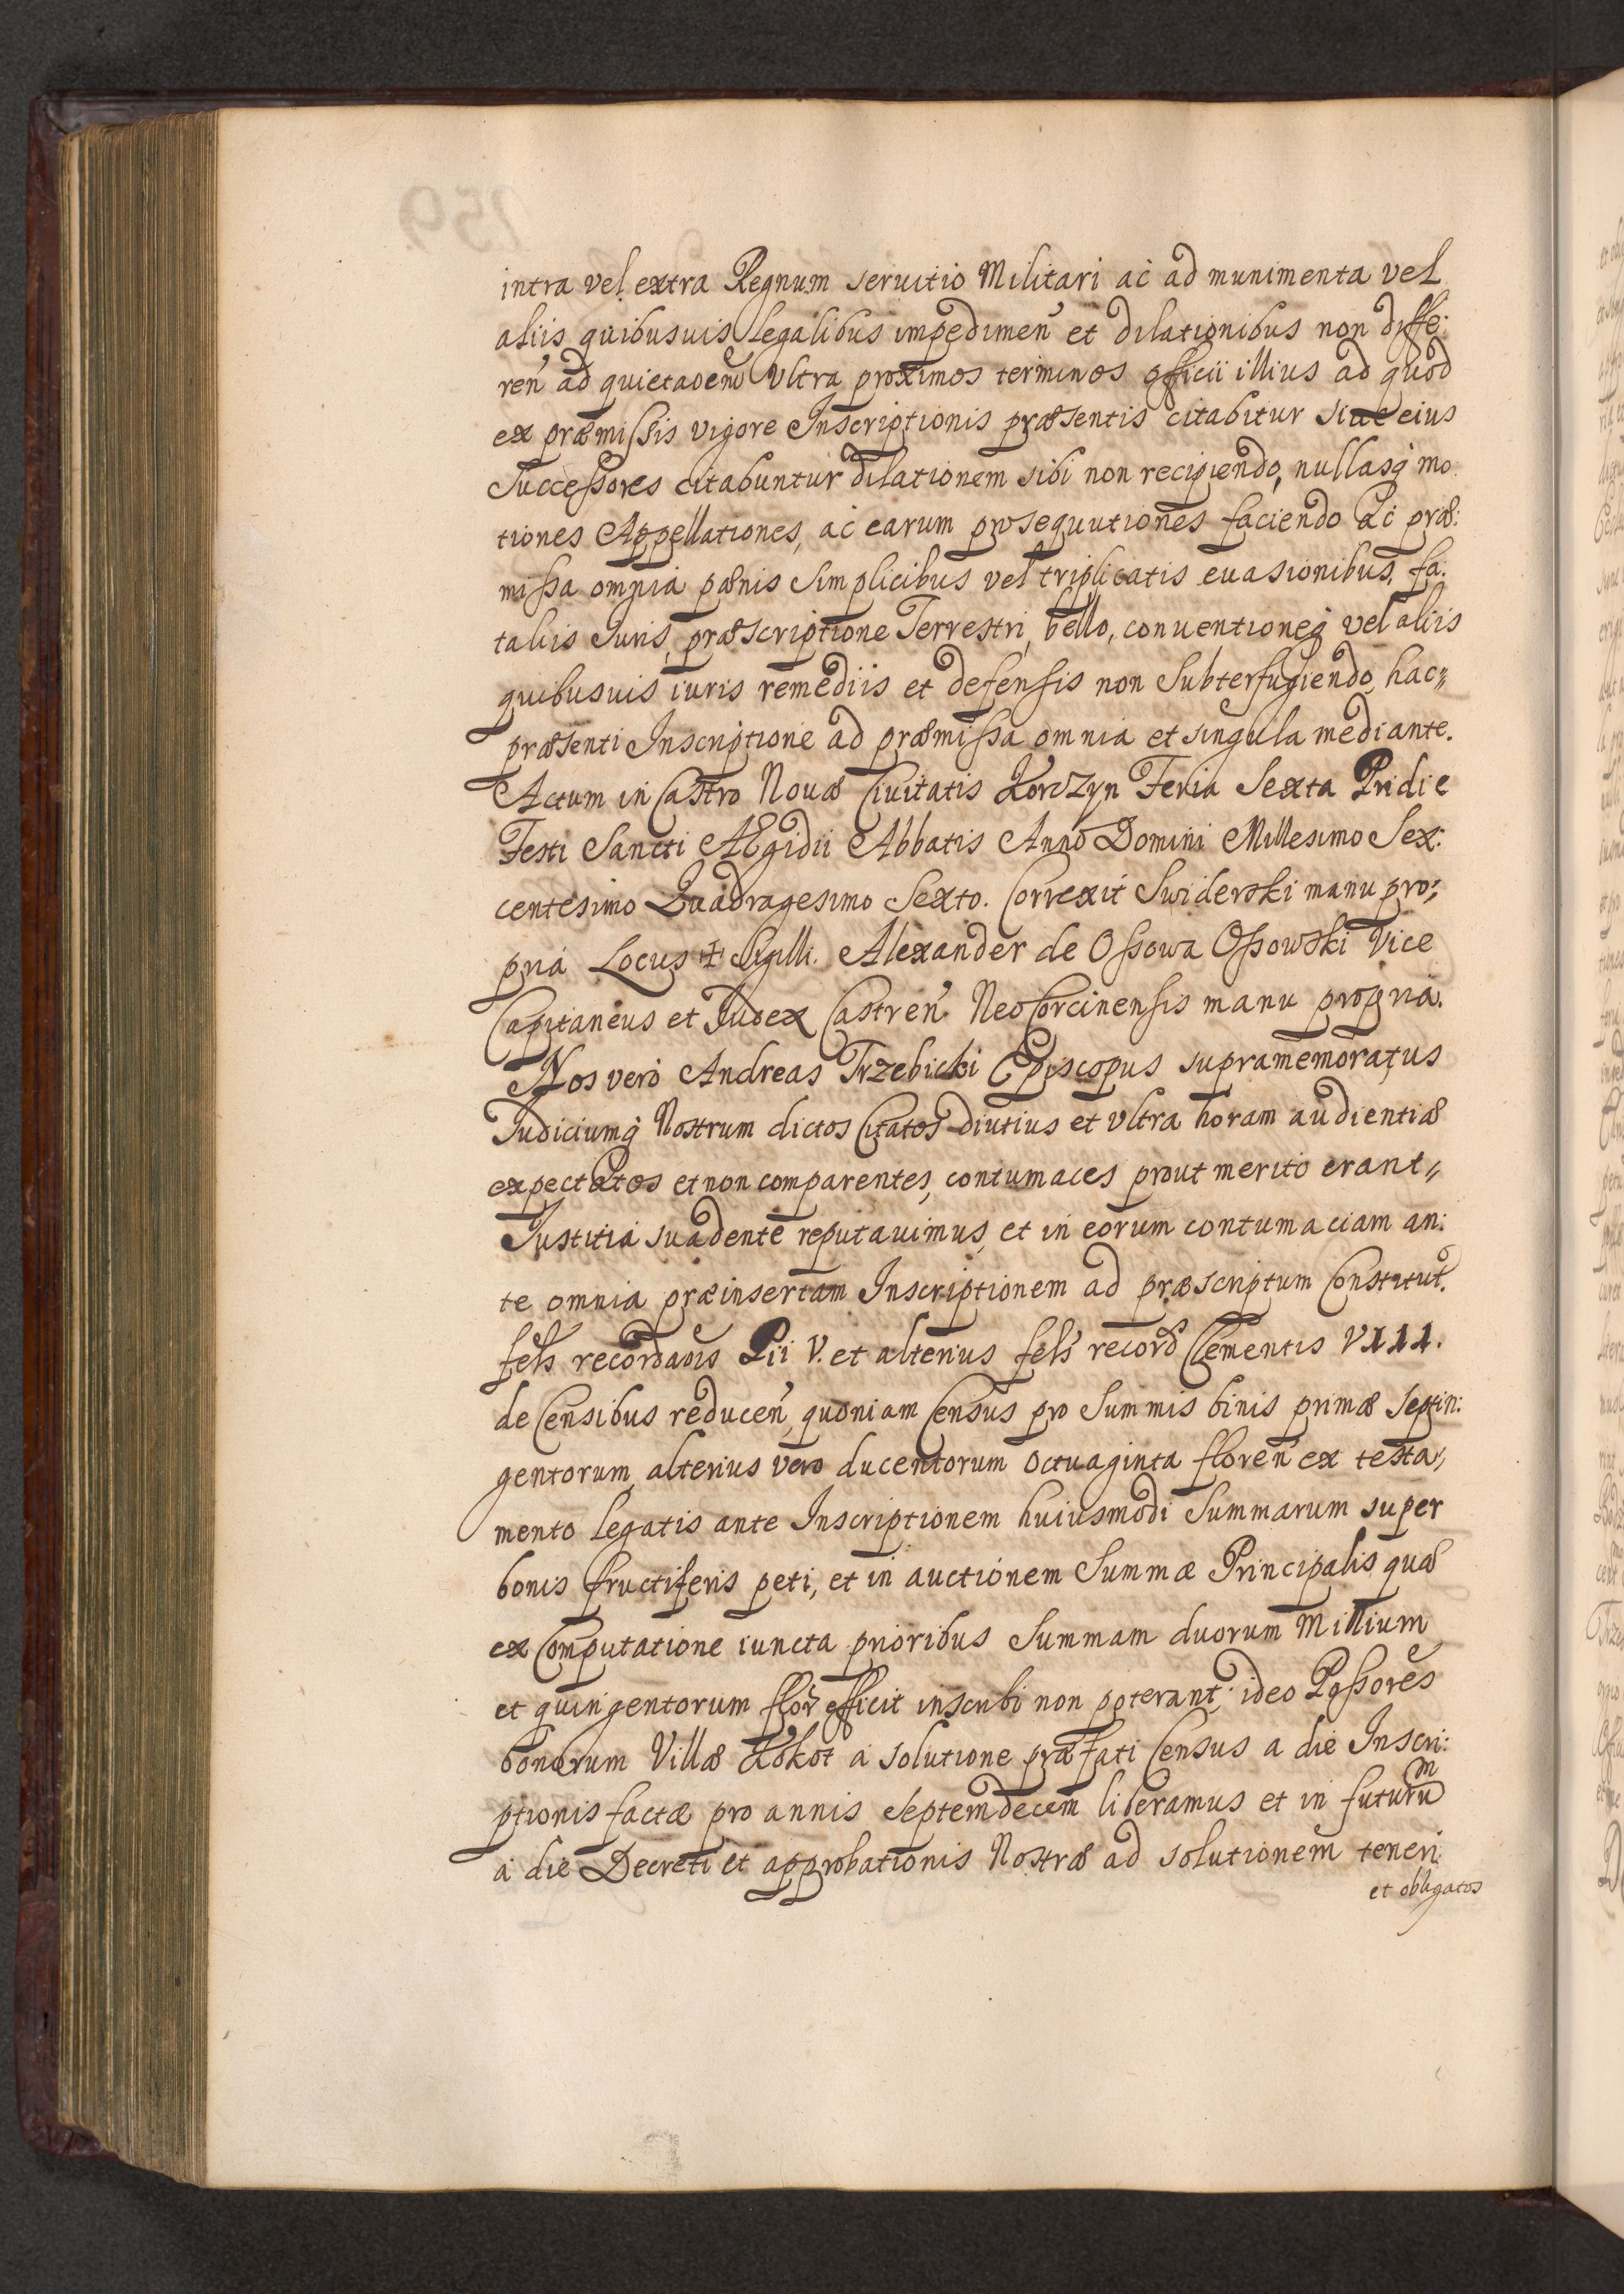 intra vel extra Regnum seruitio Militari ac ad munimenta vel
aliis quibusuis legalibus impedimen̄ et dilationibus non diffe:
ren̄ ad quietaõem Vltra proximos terminos officii illius ad quod
ex præmissis vigore Inscriptionis præsentis citabitur siue eius
Successores citabuntur dilationem sibi non recipiendo, nullasq̃ mo
tiones Appellationes, ac earum prosequutiones faciendo Ac præ:
missa omnia pænis simplicibus vel triplicatis euasionibus, fa:
taliis Iuris, præscriptione Terrestri, bello, conuentioneq̃ vel aliis
quibusuis iuris remediis et defensis non Subterfugiendo, hac„
præsenti Inscriptione ad præmissa omnia et singula mediante.
Actum in Castro Nouæ Ciuitatis Korczyn Feria Sexta Pridie
Festi Sancti AEgidii Abbatis Anno Domini Millesimo Sex:
centesimo Quadragesimo Sexto. Correxit Swiderski manu pro:
pria Locus ✝ Sigilli. Alexander de Ossowa Ossowski Vice
Capitaneus et Iudex Castren̄ NeoCorcinensis manu propria.
Nos vero Andreas Trzebicki Episcopus supramemoratus
Iudiciumq̃ Nostrum dictos Citatos diutius et vltra horam audientiæ
expectatos et non comparentes, contumaces prout merito erant„
Iustitia suadente reputauimus, et in eorum contumaciam an:
te omnia præinsertam Inscriptionem ad præscriptum Constitut̃.
fel̃s recordaõis Pii V. et alterius fel̃s record̃ Clementis VIII.
de Censibus reducen̄, quoniam Census pro Summis binis primæ Septin:
gentorum, alterius vero ducentorum octuaginta floren̄ ex testa„
mento legatis ante Inscriptionem huiusmodi Summarum super
bonis fructiferis peti, et in auctionem Summæ Principalis, quæ
ex Computatione iuncta prioribus Summam duorum Millium
et quingentorum flor̃ efficit inscribi non poterant, ideo Possores
bonorum Villæ Łokot a solutione præfati Census a die Inscri:
ptionis factæ pro annis Septemdecem liberamus et in futurum
a die Decreti et approbationis Nostræ ad solutionem teneri
et obligatos